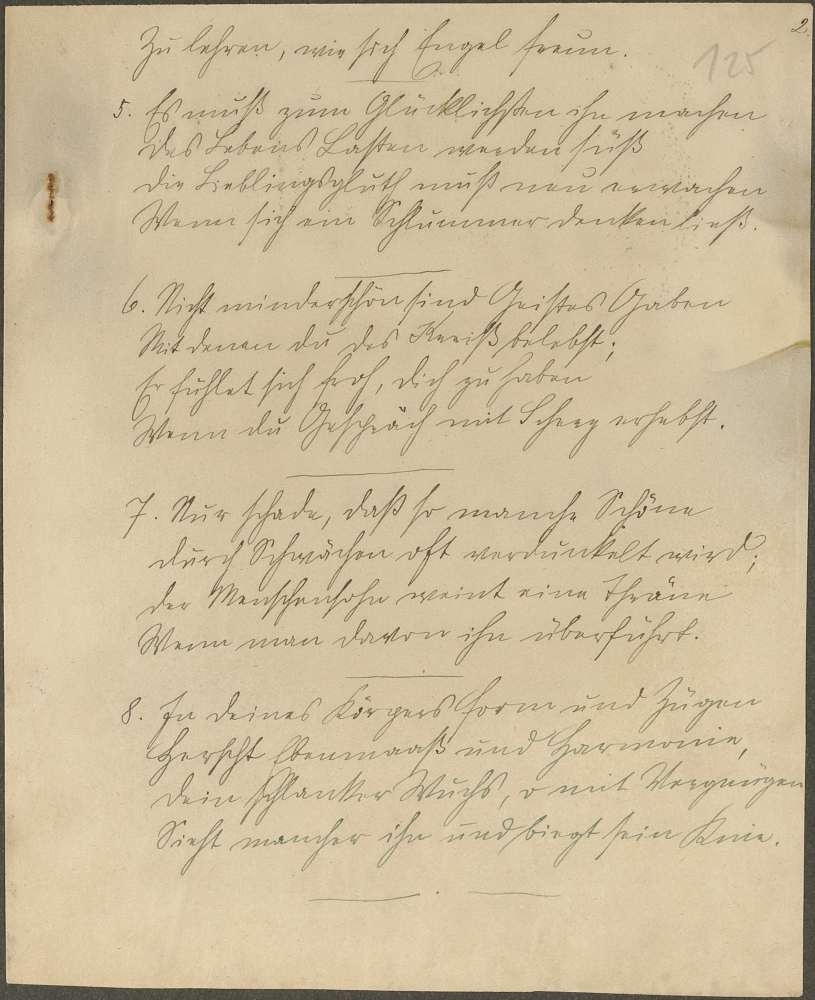 2.
125
Zu lehren, wie sich Engel freun.
5. Es muß zum Glücklichsten ihn machen
Des Lebens Lasten werden süß
Die Lieblingsgluth muß neu erwachen
Wenn sich ein Schlummer denken ließ.
6. Nicht minderschön sind Geistes Gaben
Mit denen du des Kreiß belebst;
Er fühlet sich froh, dich zu haben
Wenn du Gespräch mit Scherz erhebst.
7. Nur schade, daß so manche Schöne
durch Schwächen oft verdunkelt wird;
der Menschensohn weint eine Thräne
Wenn man davon ihn überführt.
8. In deines Körpers Form und Zügen
Herscht Ebenmaaß und Harmonie,
Dein schlanker Wuchs, o mit Vergnügen
Sieht mancher ihn und biegt sein Knie.